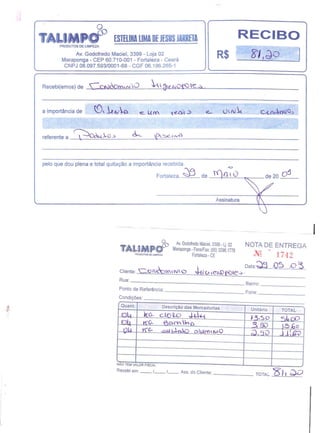 TALIMPO
PRODUTOS DE LIMPEZA
ESTELINA LIMA DE JESUS BARRETA
Av. Godofredo Maciel, 3399 - Loja 02
Maraponga - CEP 60.710-001 - Fortaleza - Ceará
RECIBO
R$ 81,20
Recebi(emos) de Condominio
a importância de Oitenta e um reais e vinte centavos
referente a Produtos de piscina
pelo que dou plena e total quitação a importância recebida.
Fortaleza, 29 de Maio de 20 03
Assinatura
TALIMPO
PRODUTOS DE LIMPEZA
Av. Godofredo Maciel, 3399 - Lj. 02
Fortaleza - CE
NOTA DE ENTREGA
Nº 1742
Data 29 05 03
Cliente: Condominio
Rua:
Bairro:
Ponto de Referência:
Fone:
Condições:
Quant. Descrição das Mercadorias Unitário TOTAL
04 KG cloro 13,50 54,00
04 KG Barrilha
04 KG sulfato aluminio
NÃO TEM VALOR FISCAL
Recebi em: / / Ass. do Cliente: TOTAL 81,20